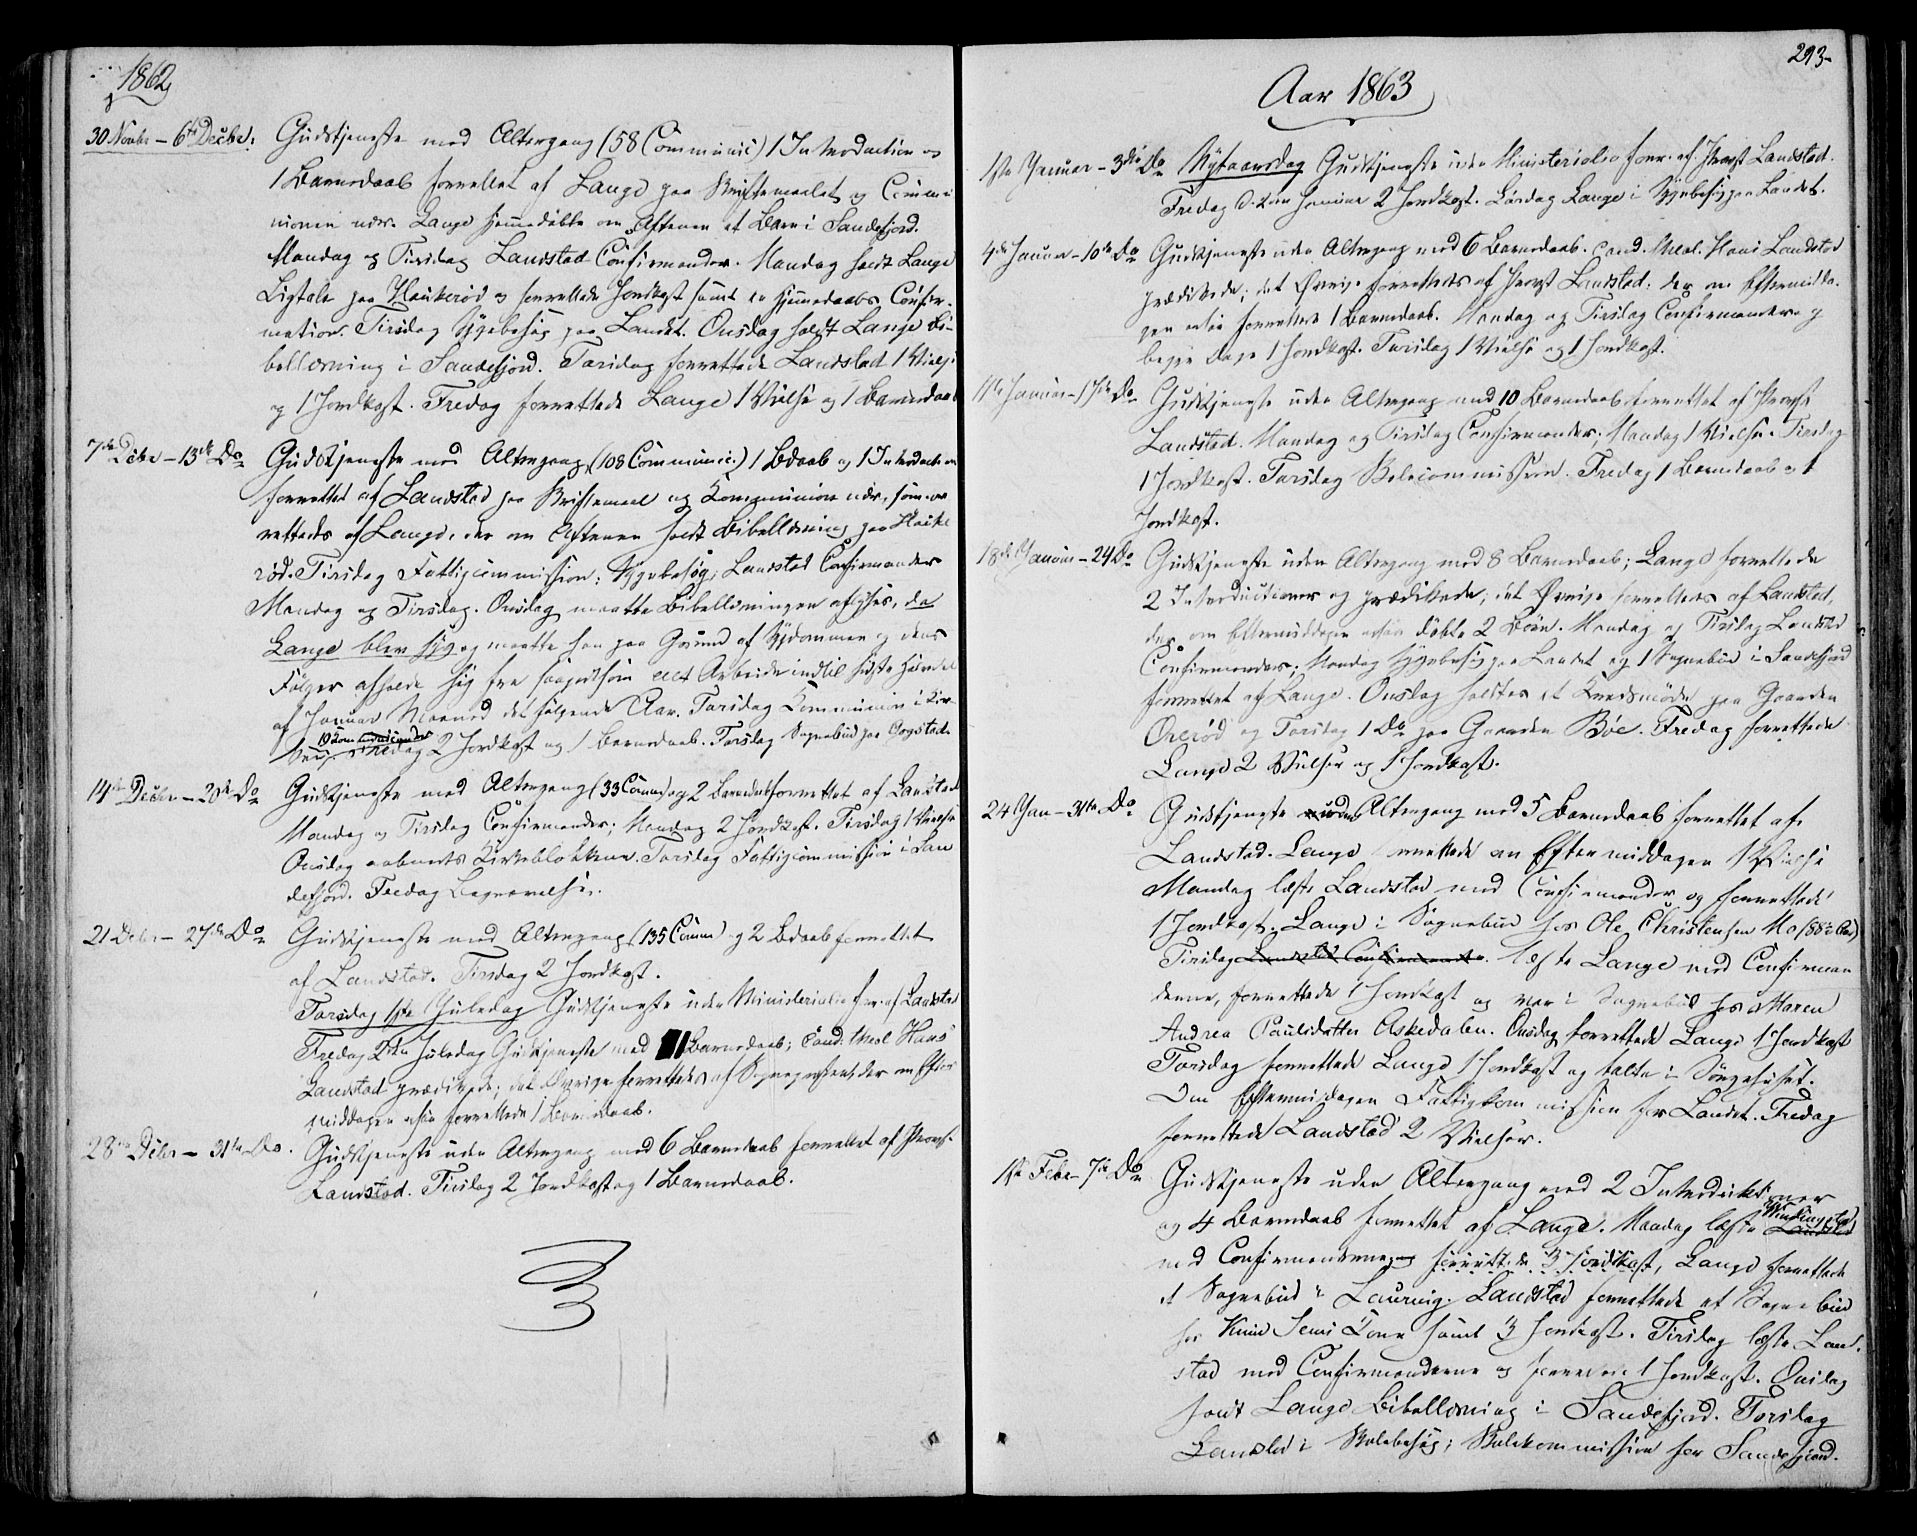 1862
30 Novbr – 6te Decbr. Gudstjeneste med Altergang (58 Communic) 1 Introduction og
1 Barnedaab forrettet af Lange paa Skriftemaalet og Commu
nionen nær. Lange hjemmedøbte om Aftenen et Barn i Sandefjord.
Mandag og Tirsdag Landstad Confirmander. Mandag holdt Lange
Ligtale paa Haukerød og forrettede Jordkast samt en hjemmedaabs Confir-
mation. Tirsdag Sygebesøg paa Landet. Onsdag holdt Lange Bi-
bellæsning i Sandefjord. Torsdag forrettede Landstad 1 Vielse
og 1 Jordkast. Fredag forrettede Lange 1 Vielse og 1 Barnedaab
7de Debr – 13de Do Gudstjeneste med Altergang (108 Communic.) 1 Bdaab og 1 Introduction
forrettet af Landstad paa Skriftemaal og Kommunion nær, som for
rettedes af Lange, der om Aftenen holdt Bibellæsning paa Hauke
rød. Tirsdag Fattigcommission; Sygebesøg; Landstad Confirmander
Mandag og Tirsdag. Onsdag maatte Bibellæsningen aflyses, da
Lange blev syg og maatte han paa Grund af Sygdommen og dens
Følger afholde sig fra saagodtsom alt Arbeide indtil sidste Halvdel
af Januar Maaned det følgende Aar. Torsdag Kommunion i Kir-
10 Kommunicander
Fredag 2 Jordkast og 1 Barnedaab. Torsdag Sognebud paa Gogstad
14de Decbr – 20de Do Gudstjeneste med Altergang (33 Comm) og 2 Barnedaab forrettet af Landstad
Mandag og Tirsdag Confirmander; Mandag 2 Jordkast. Tirsdag 1 Vielse
Onsdag aabnedes Kirkeblokken. Torsdag Fattigcommission i San
defjord. Fredag Begravelse.
21 Debr – 27de Do Gudstjeneste med Altergang (135 Comm) og 2 Bdaab forrettet
af Landstad. Tirsdag 2 Jordkast.
Torsdag 1ste Juledag Gudstjeneste uden Ministerialia forr. af Landstad
Fredag 2den Juledag Gudstjeneste med 11 Barnedaab; Cand. theol Hans
Landstad prædikede; det Øvrige forrettedes af Sognepresten, der om Efter
middagen ogsaa forrettede 1 Barnedaab.
28de Debr – 31te Do. Gudstjeneste uden Altergang med 6 Barnedaab forrettet af Provst
Landstad. Tirsdag 2 Jordkast og 1 Barnedaab.
293.
Aar 1863
1ste Januar – 3die Do Nytaarsdag Gudstjeneste uden Ministerialia forr. af Provst Landstad.
Fredag d. 2den Januar 2 Jordkast. Lørdag Lange i Sygebesøg paa Landet.
4de Januar – 10de Do Gudstjeneste uden Altergang med 6 Barnedaab. Cand. theol. Hans Landstad
prædikede; det Øvrige forrettedes af Provst Landstad, der om Eftermidda-
gen ogsaa forrettede 1 Barnedaab. Mandag og Tirsdag Confirmander og
begge Dage 1 Jordkast. Torsdag 1 Vielse og 1 Jordkast.
11te Januar – 17de Do Gudstjeneste uden Altergang med 10 Barnedaab forrettet af Provst
Landstad. Mandag og Tirsdag Confirmander; Mandag 1 Vielse. Tirsdag
1 Jordkast. Torsdag Skolecommission. Fredag 1 Barnedaab og 1
Jordkast.
18de Januar – 24 Do Gudstjeneste uden Altergang med 8 Barnedaab; Lange forrettede
2 Introductioner og prædikede; det Øvrige forrettedes af Landstad,
der om Eftermiddagen ogsaa døbte 2 Børn. Mandag og Tirsdag Landstad
Confirmander; Mandag Sygebesøg paa Landet og 1 Sognebud i Sandefjord
forrettet af Lange. Onsdag holdtes et Kredsmøde paa Gaarden
Orerød og Torsdag 1 Do paa Gaarden Bøe. Fredag forrettede
Lange 2 Vielser og 1 Jordkast.
24 Jan – 31te Do Gudstjeneste uden Altergang med 5 Barnedaab forrettet af
Landstad. Lange forrettede om Eftermiddagen 1 Vielse
Mandag læste Landstad med Confirmander og forrettede
1 Jordkast. Lange i Sognebud hos Ole Christensen Mo (88 Aar)
Tirsdag Landstad Confirmander. læste Lange med Confirman
derne, forrettede 1 Jordkast og var i Sognebud hos Maren
Andrea Paulsdatter Askedalen. Onsdag forrettede Lange 1 Jordkast
Torsdag forrettede Lange 1 Jordkast og talte i Sørgehuset.
Om Eftermiddagen Fattigkommission for Landet. Fredag
forrettede Landstad 2 Vielser.
1ste Febr – 7de Do Gudstjeneste uden Altergang med 2 Introduktioner
og 4 Barnedaab forrettet af Lange. Mandag læste Landstad
med Confirmanderne og forrettede 3 Jordkast, Lange forrettede
et Sognebud i Laurvig. Landstad forrettede et Sognebud
hos Kone samt 3 Jordkast. Tirsdag læste Land-
stad med Confirmanderne og forrettede 1 Jordkast. Onsdag
holdt Lange Bibellæsning i Sandefjord. Torsdag
Landstad i Skolebesøg; Skolekommission for Sandefjord.